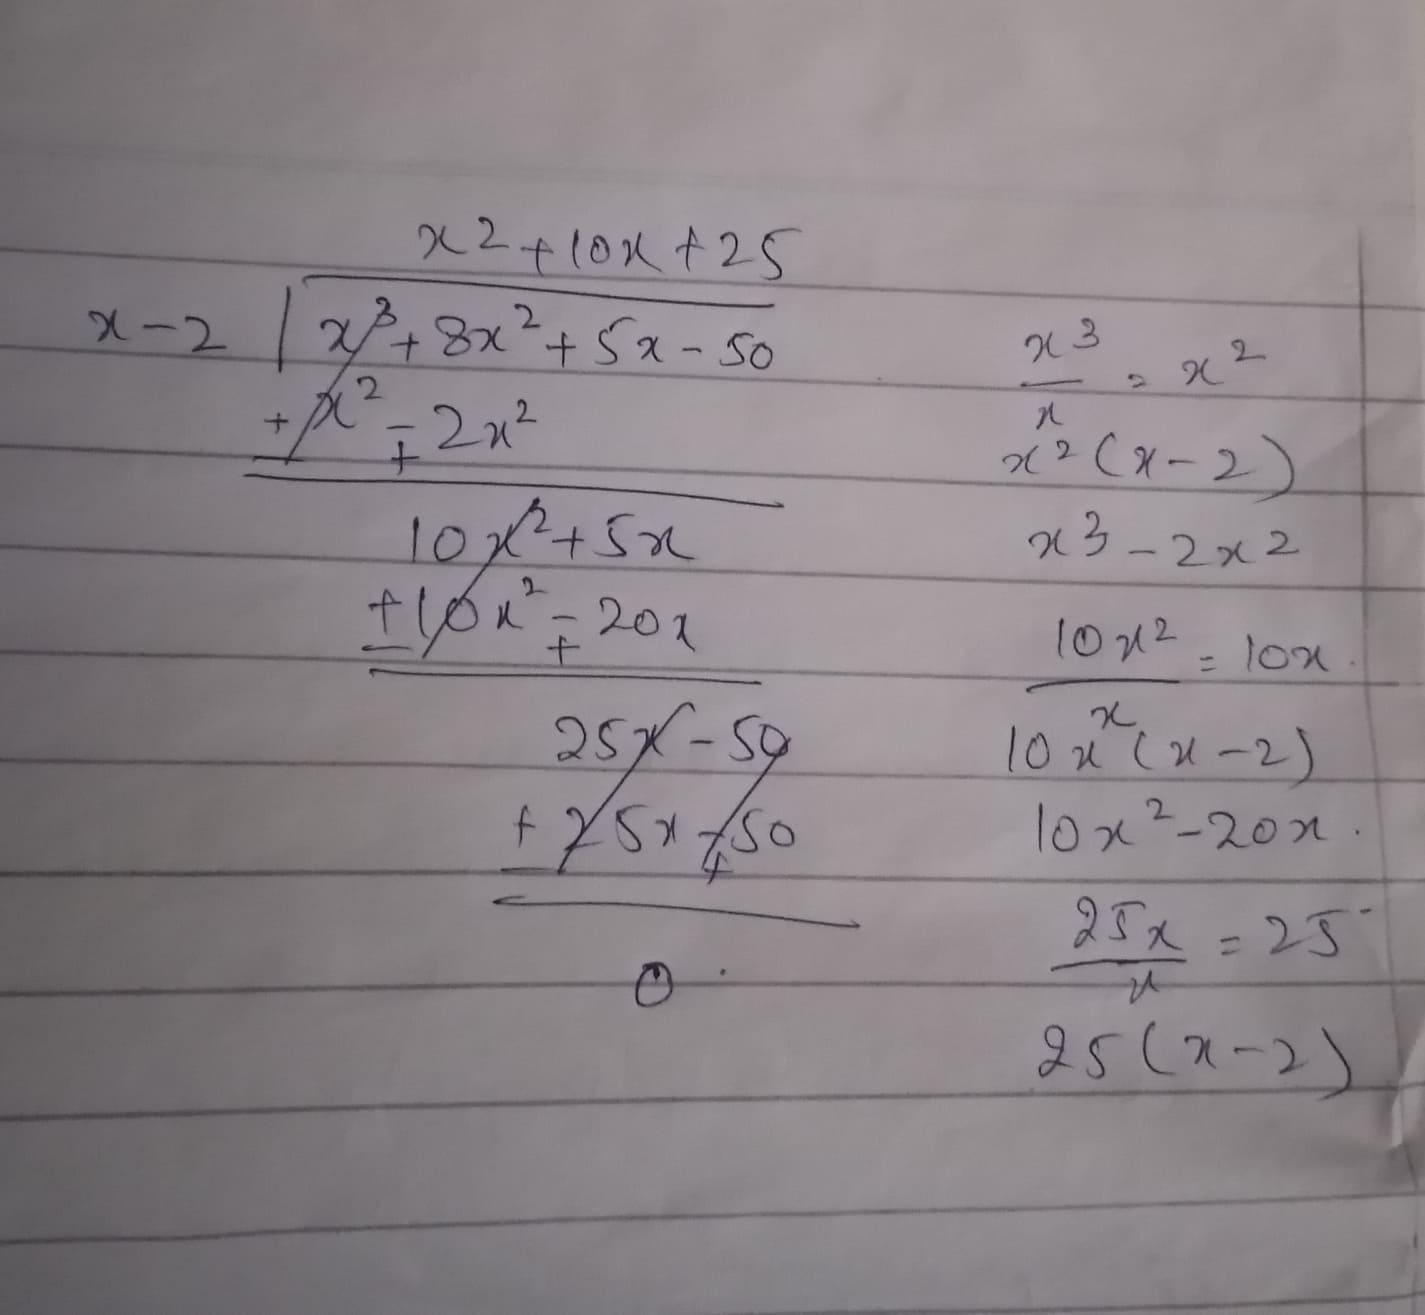 x2+10x+25
x-2 | x³+8x²+5x-50
+x²-2x²
- +
10x²+5x
+10x²-20x
- +
25x-50
+25x-50
- +
0
x3
x = x2
x2(x-2)
x3-2x2
10x2 = 10x
x
10x(x-2)
10x2-20x
25x = 25
x
25(x-2)